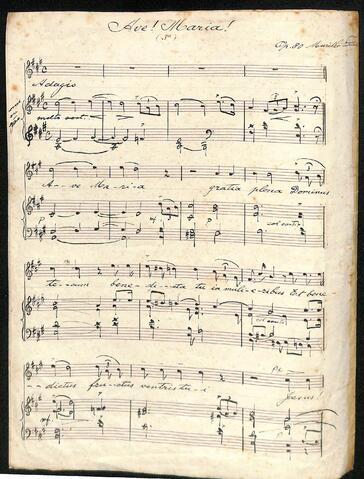 Ave! Maria!
(3ª)
Op. 80 Murillo
Adagio
A - ve Ma - ri - a gratia plena Dominus
P mf col canto
te - cum bene - di - ta tu in muli - eribus Et bene
col canto
- - dictus fru - ctus ventris tu - i Jesus!
mf